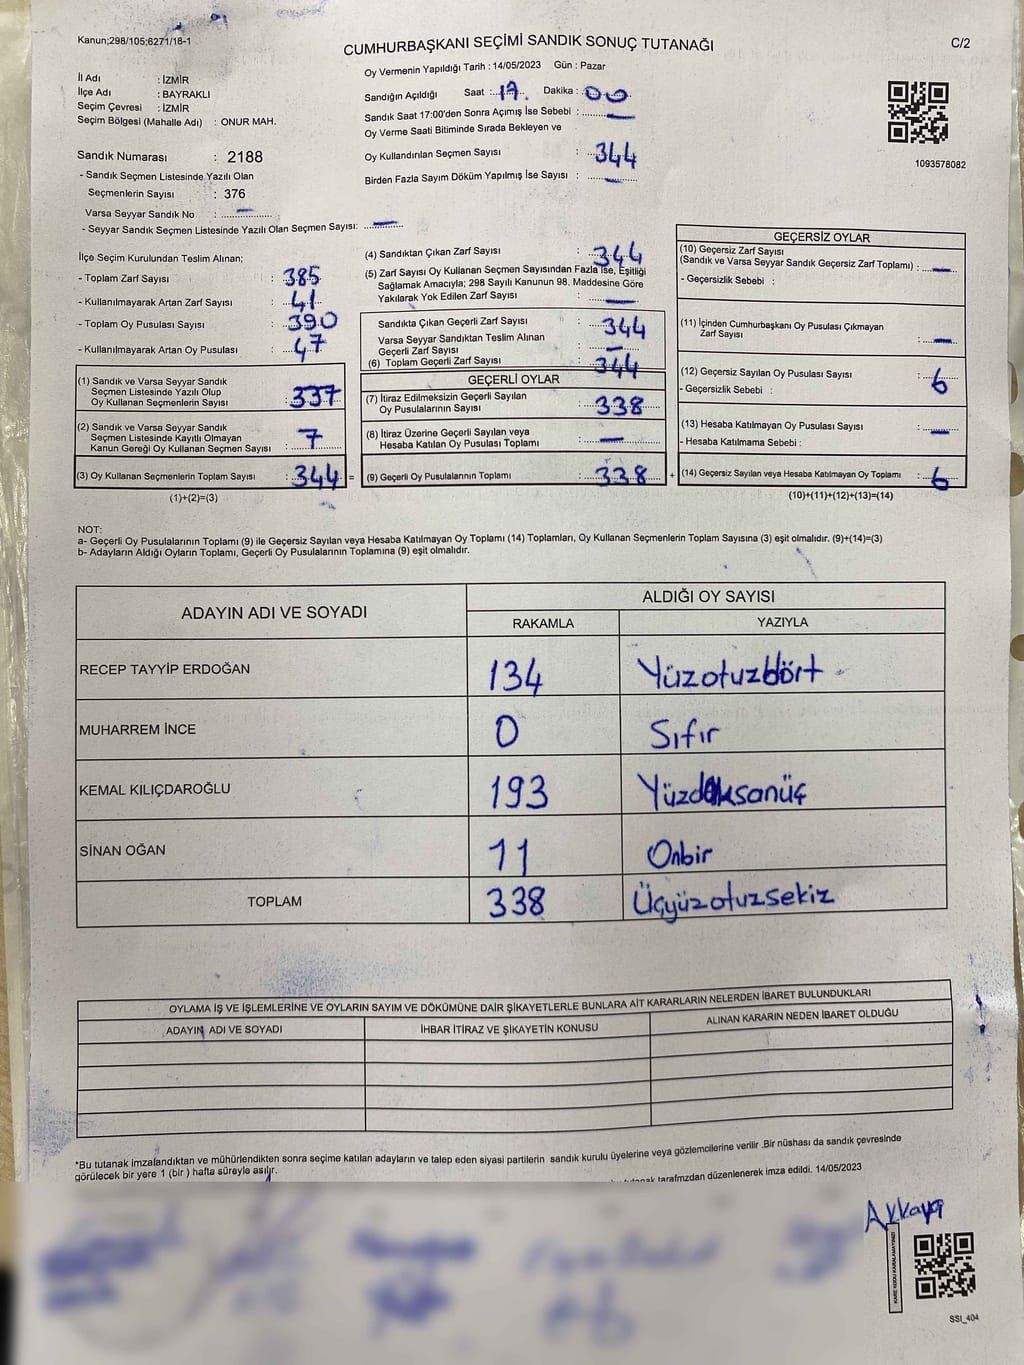 Kanun;298/105;6271/18-1
C/2
CUMHURBAŞKANI SEÇİMİ SANDIK SONUÇ TUTANAĞI
Oy Vermenin Yapıldığı Tarih : 14/05/2023 Gün : Pazar
İl Adı : İZMİR
İlçe Adı : BAYRAKLI
Seçim Çevresi : İZMİR
Seçim Bölgesi (Mahalle Adı) : ONUR MAH.
Sandığın Açıldığı Saat : 17 Dakika : 00
Sandık Saat 17:00'den Sonra Açımış İse Sebebi : —
Oy Verme Saati Bitiminde Sırada Bekleyen ve
Oy Kullandırılan Seçmen Sayısı : 344
Birden Fazla Sayım Döküm Yapılmış İse Sayısı : —
1093578082
Sandık Numarası : 2188
- Sandık Seçmen Listesinde Yazılı Olan
Seçmenlerin Sayısı : 376
Varsa Seyyar Sandık No : —
- Seyyar Sandık Seçmen Listesinde Yazılı Olan Seçmen Sayısı: —
İlçe Seçim Kurulundan Teslim Alınan;
- Toplam Zarf Sayısı : 385
- Kullanılmayarak Artan Zarf Sayısı : 41
- Toplam Oy Pusulası Sayısı : 390
- Kullanılmayarak Artan Oy Pusulası : 47
(1) Sandık ve Varsa Seyyar Sandık
Seçmen Listesinde Yazılı Olup
Oy Kullanan Seçmenlerin Sayısı : 337
(2) Sandık ve Varsa Seyyar Sandık
Seçmen Listesinde Kayıtlı Olmayan
Kanun Gereği Oy Kullanan Seçmen Sayısı : 7
(3) Oy Kullanan Seçmenlerin Toplam Sayısı : 344 =
(1)+(2)=(3)
(4) Sandıktan Çıkan Zarf Sayısı : 344
(5) Zarf Sayısı Oy Kullanan Seçmen Sayısından Fazla İse, Eşitliği
Sağlamak Amacıyla; 298 Sayılı Kanunun 98. Maddesine Göre
Yakılarak Yok Edilen Zarf Sayısı : —
Sandıkta Çıkan Geçerli Zarf Sayısı : 344
Varsa Seyyar Sandıktan Teslim Alınan
Geçerli Zarf Sayısı : —
(6) Toplam Geçerli Zarf Sayısı : 344
GEÇERLİ OYLAR
(7) İtiraz Edilmeksizin Geçerli Sayılan
Oy Pusulalarının Sayısı : 338
(8) İtiraz Üzerine Geçerli Sayılan veya
Hesaba Katılan Oy Pusulası Toplamı : —
(9) Geçerli Oy Pusulalarının Toplamı : 338 +
GEÇERSİZ OYLAR
(10) Geçersiz Zarf Sayısı
(Sandık ve Varsa Seyyar Sandık Geçersiz Zarf Toplamı) : —
- Geçersizlik Sebebi :
(11) İçinden Cumhurbaşkanı Oy Pusulası Çıkmayan
Zarf Sayısı : —
(12) Geçersiz Sayılan Oy Pusulası Sayısı : 6
- Geçersizlik Sebebi :
(13) Hesaba Katılmayan Oy Pusulası Sayısı : —
- Hesaba Katılmama Sebebi :
(14) Geçersiz Sayılan veya Hesaba Katılmayan Oy Toplamı : 6
(10)+(11)+(12)+(13)=(14)
NOT:
a- Geçerli Oy Pusulalarının Toplamı (9) ile Geçersiz Sayılan veya Hesaba Katılmayan Oy Toplamı (14) Toplamları, Oy Kullanan Seçmenlerin Toplam Sayısına (3) eşit olmalıdır. (9)+(14)=(3)
b- Adayların Aldığı Oyların Toplamı, Geçerli Oy Pusulalarının Toplamına (9) eşit olmalıdır.
ADAYIN ADI VE SOYADI ALDIĞI OY SAYISI
RAKAMLA YAZIYLA
RECEP TAYYİP ERDOĞAN 134 Yüzotuzdört
MUHARREM İNCE 0 Sıfır
KEMAL KILIÇDAROĞLU 193 Yüzdoksanüç
SİNAN OĞAN 11 Onbir
TOPLAM 338 Üçyüzotuzsekiz
OYLAMA İŞ VE İŞLEMLERİNE VE OYLARIN SAYIM VE DÖKÜMÜNE DAİR ŞİKAYETLERLE BUNLARA AİT KARARLARIN NELERDEN İBARET BULUNDUKLARI
ADAYIN ADI VE SOYADI İHBAR İTİRAZ VE ŞİKAYETİN KONUSU ALINAN KARARIN NEDEN İBARET OLDUĞU
*Bu tutanak imzalandıktan ve mühürlendikten sonra seçime katılan adayların ve talep eden siyasi partilerin sandık kurulu üyelerine veya gözlemcilerine verilir .Bir nüshası da sandık çevresinde
görülecek bir yere 1 (bir ) hafta süreyle asılır.
tarafımızdan düzenlenerek imza edildi. 14/05/2023
Akkaya
KARE KODU KARALAMAYINIZ!
SSI_404